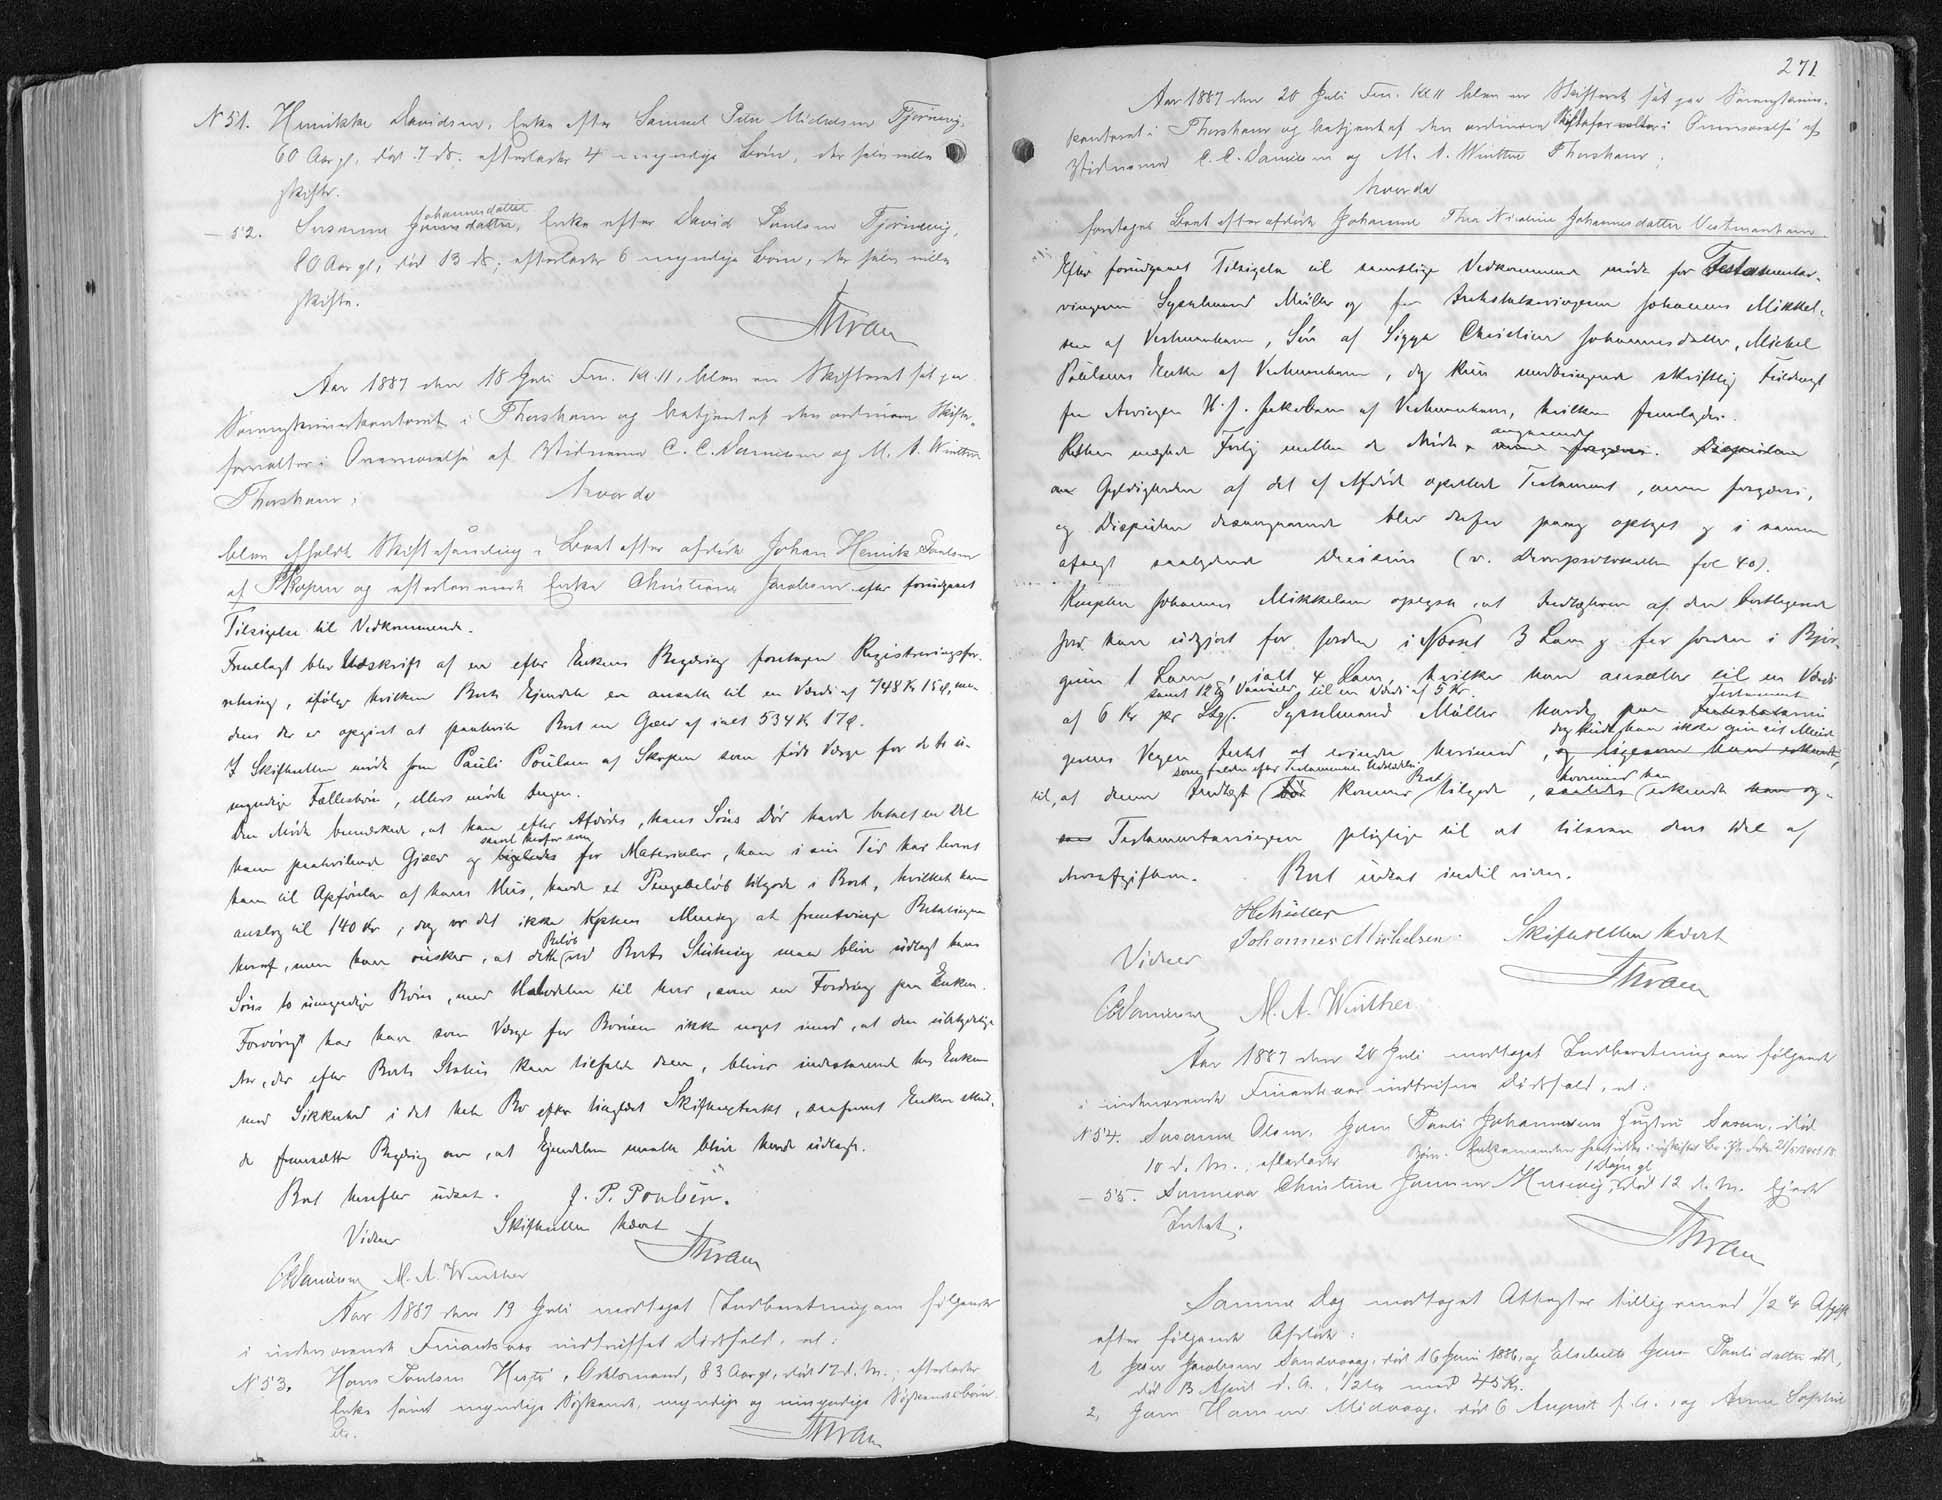 N 51. Henrikke Davidsen, Enke efter Samuel Peter Michelsen Tjørnevig,
60 Aar gl, død 7 ds; efterlader 4 myndige Børn, der selv ville
skifte.
- 52. Susanne Johannesdatter, Enke efter David Poulsen Tjørnevig,
80 Aar gl, død 13 ds; efterlader 6 myndige Børn, der selv ville
skifte.
Thran
Aar 1887 den 18 Juli Fm. Kl. 11, blev en Skifteret sat paa
Sorenskriverkontoret i Thorshavn og betjent af den ordinære Skifte-
forvalter i Overværelse af Vidnerne C. C. Danielsen og M. A. Winther
Thorshavn;
hvorda
blev afholdt Skiftesamling i Boet efter afdøde Johan Henrik Poulsen
af Skopen og efterlevende Enke Christiane Jacobsen efter forudgaaet
Tilsigelse til Vedkommende.
Fremlagt blev Udskrift af en efter Enkens Begjæring foretagen Registreringsfor-
retning, ifølge hvilken Boets Ejendele er ansatte til en Værdi af 748 Kr 15 Ø, me-
dens der er opgivet at paahvile Boet en Gjæld af ialt 534 Kr 17 Ø.
I Skifteretten mødte Joen Pauli Poulsen af Skopen som født Værge for de to u-
myndige Fællesbørn, ellers mødte Ingen.
Den Mødte bemærkede, at han efter Afdødes, hans Søns Død havde betalt en Del
ham paahvilende Gjæld og samt derfor som for Materialer, han i sin Tid har leveret
ham til Opførelse af hans Hus, havde et Pengebeløb tilgode i Boet, hvilket han
anslog til 140 Kr, dog var det ikke Kptens Mening at fremtvinge Betalingen
heraf, men han ønsker, at dette Beløb ved Boets Slutning maa blive udlagt hans
Søns to umyndige Børn, med Halvdelen til hver, som en Fordring paa Enken.
Forøvrigt har han som Værge for Børnene ikke noget imod, at den
Arv, der efter Boets Status kan tilfalde dem, bliver indestaaende hos Enken
med Sikkerhed i det hele Bo efter tinglæst Skifteextrakt, saafremt Enken skul-
de fremsætte Begjæring om, at Ejendelene maatte blive hende udlagte.
Boet herefter udsat. J. P. Poulsen.
Vidner Skifteretten hævet
Thran
CCDanielsen M. A. Winther
Aar 1887 den 19 Juli modtaget Indberetning om følgende
i indeværende Finantsaar indtruffet Dødsfald, nl:
N 53. Hans Poulsen Husø, Odelsmand, 83 Aar gl, død 17 d. M.; efterlader
Enke samt myndige Søskende, myndige og umyndige Søskendebørn
etc.
Thran
271
Aar 1887 den 20 Juli Fm. Kl 11 blev en Skifteret sat paa Sorenskriver-
kontoret i Thorshavn og betjent af den ordinære Skifteforvalter i Overværelse af
Vidnerne C. C. Danielsen og M. A. Winther Thorshavn;
hvorda
foretages Boet efter afdøde Johanne Thea Nicoline Johannesdatter Vestmanhavn
Efter forudgaaet Tilsigelse til samtlige Vedkommende mødte for Testamentar-
vingerne Sysselmand Müller og for Intestatarvingerne Johannes Mikkel-
sen af Vestmanhavn, Søn af Sigga Christine Johannesdatter, Michel
Poulsens Enke af Vestmanhavn, dog kun medbringende skriftlig Fuldmagt
fra Arvingen H. J. Jakobsen af Vestmanhavn, hvilken fremlagdes.
Retten mæglede Forlig mellem de Mødte angaaende
Gyldigheden af det af Afdøde oprettede Testament, men forgjæves,
og Disputen desangaaende blev derfor paany optaget og i samme
afsagt saalydende Decision (v. Domsprotokollen fol 40).
Kmpten Johannes Mikkelsen oplyste, at Indtægten af den bortlagende
Jord havde udgjort for Jorden i Næset 3 Lam og for Jorden i Bjør-
guin 1 Lam, ialt 4 Lam, hvilke han ansætter til en Værdi
af 6 Kr pr Stk. samt 12 Vommer til en Værdi af 5 Kr. Sysselmand Müller havde paa Testament
gernes Vegne Intet at erindre herimod, dog kunde han ikke give sit Minde
til, at denne Indtægt som falder efter Testamentets Udstedelse kommer Boet tilgode, hvorimod han erkendte
Testamentarvingerne pligtige til at tilsvare deres Del af
Arveafgiften. Boet udsat indtil videre.
HMüller
Johannes Michelsen. Skifteretten hævet
Vidner Thran
CCDanielsen M. A. Winther
Aar 1887 den 20 Juli modtaget Indberetning om følgende
i indeværende Finantsaar indtrufne Dødsfald, nl:
N 54. Susanne Olsen, Joen Pauli Johannesens Hustru Saxen, død
10 d. M.; efterlader Børn.
- 55. Sunneva Christine Jensen Husevig, 1 Døgn gl, død 12 d. M. Ejede
Intet.
Thran
Samme Dag modtaget Attester tilligemed 1/2 % Afgift
efter følgende Afdøde:
1, Peter Jacobsen Sandvaag, død 16 Juni 1886, og Elsebeth Joen Paulidatter ibd,
død 13 April d. A., 1/2 % med 45 Kr.
2, Joen Hansen Midvaag, død 6 August f. A., og Anne Sophie